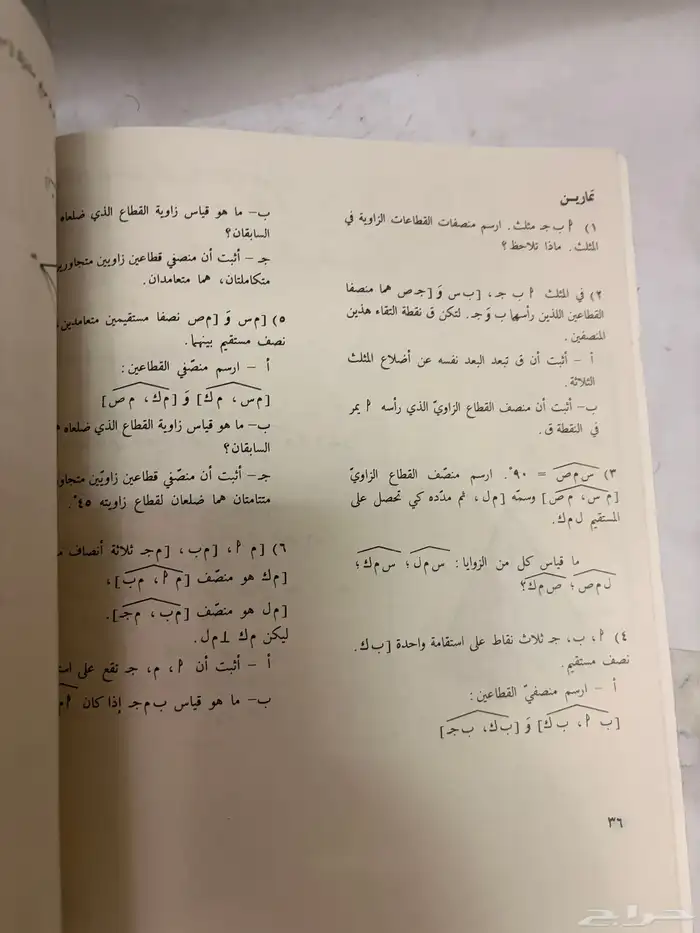 تمارين
١) أ ب جـ مثلث. ارسم منصفات القطاعات الزاوية في
المثلث. ماذا تلاحظ؟
٢) في المثلث أ ب جـ، [ب س وَ [جـ ص هما منصفا
القطاعين اللذين رأسها ب وَ جـ. لتكن ق نقطة التقاء هذين
المنصفين.
أ - أثبت أن ق تبعد البعد نفسه عن أضلاع المثلث
الثلاثة.
ب- أثبت أن منصف القطاع الزاويّ الذي رأسه أ يمر
في النقطة ق.
٣) س م ص = ٩٠°. ارسم منصّف القطاع الزاويّ
[م س، م ص] وسمّه [م ل، ثم مدّده كي تحصل على
المستقيم ل م ك.
ما قياس كل من الزوايا: س م ل؛ س م ك؛
ل م ص؛ ص م ك؟
٤) أ، ب، جـ ثلاث نقاط على استقامة واحدة [ب ك.
نصف مستقيم.
أ - ارسم منصفيّ القطاعين:
[ب أ، ب ك] وَ [ب ك، ب جـ]
ب- ما هو قياس زاوية القطاع الذي ضلعاه
السابقان؟
جـ- أثبت أن منصفي قطاعين زاويين
متكاملتان، هما متعامدان.
٥) [م س وَ [م ص نصفا مستقيمين متعامدين
نصف مستقيم بينهما.
أ - ارسم منصّفي القطاعين:
[م س، م ك] وَ [م ك، م ص]
ب- ما هو قياس زاوية القطاع الذي ضلعاه
السابقان؟
جـ- أثبت أن منصّفي قطاعين زاويّين
متتامتان هما ضلعان لقطاع زاويته ٤٥°.
٦) [م أ، [م ب، [م جـ ثلاثة أنصاف
[م ك هو منصّف [م أ، م ب]،
[م ل هو منصّف [م ب، م جـ].
ليكن م ك ⊥ م ل.
أ - أثبت أن أ، م، جـ تقع على
ب- ما هو قياس ب م جـ إذا كان
٣٦
حراج